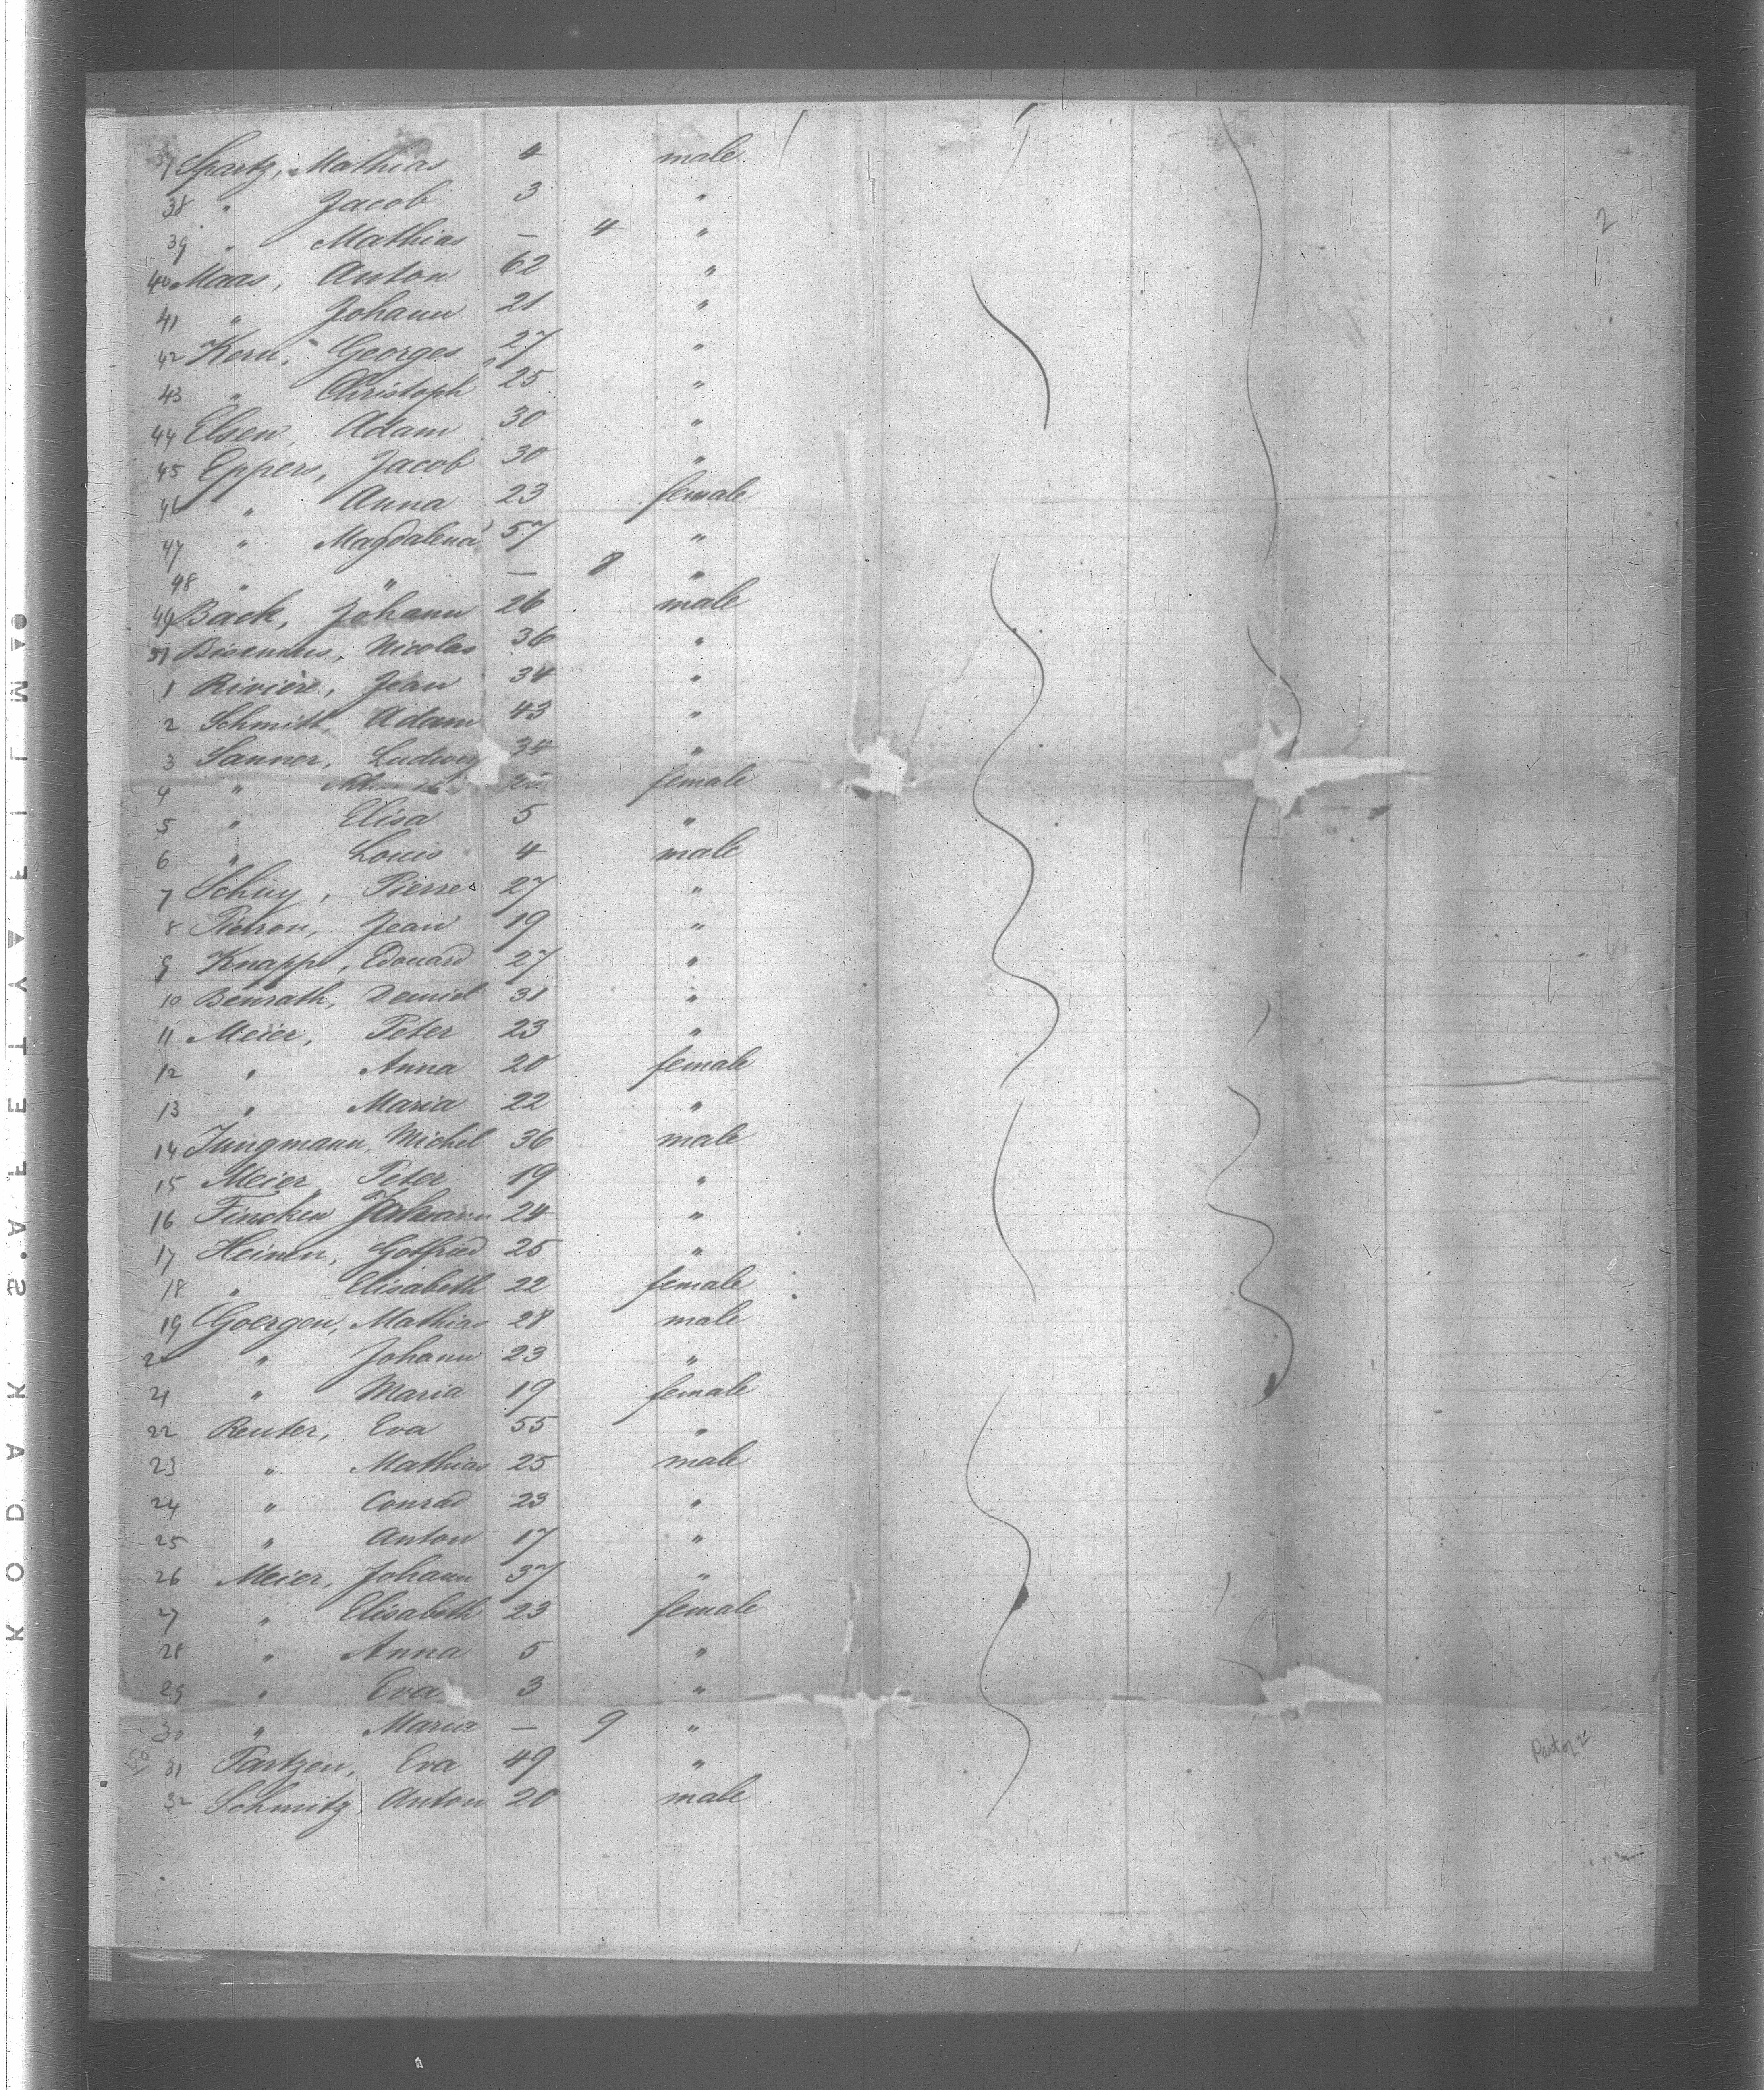 37 Spartz, Mathias 4 male
38 " Jacob 3 "
39 " Mathias — 4 "
40 Maas, Anton 62 "
41 " Johann 21 "
42 Kern, Georges 27 "
43 " Christoph 25 "
44 Elsen, Adam 30 "
45 Eppers, Jacob 30 "
46 " Anna 23 female
47 " Magdalena 57 "
48 " " — 8 "
49 Back, Johann 26 male
51 Nicolas 36 "
1 Rivière, Jean 34 "
2 Schmitt, Adam 43 "
3 Sanner, Ludwig 34 "
4 " 25 female
5 " Elisa 5 "
6 " Louis 4 male
7 Schuy, Pierre 27 "
8 Pietron, Jean 19 "
9 Knapp, Edouard 27 "
10 Benrath, Daniel 31 "
11 Meier, Peter 23 "
12 " Anna 20 female
13 " Maria 22 "
14 Jungmann, Michel 36 male
15 Meier, Peter 19 "
16 Fincken Johann 24 "
17 Heinen, Gotfried 25 "
18 " Elisabeth 22 female
19 Goergen, Mathias 28 male
2 " Johann 23 "
21 " Maria 19 female
22 Reuter, Eva 55 "
23 " Mathias 25 male
24 " Conrad 23 "
25 " Anton 17 "
26 Meier, Johann 37 "
27 " Elisabeth 23 female
28 " Anna 5 "
29 " Eva 3 "
30 " Maria — 9 "
31 Tartzen, Eva 49 "
32 Schmitz, Anton 20 male
2
Part of 2
KODAK S.A.F.E.T.Y. FILM